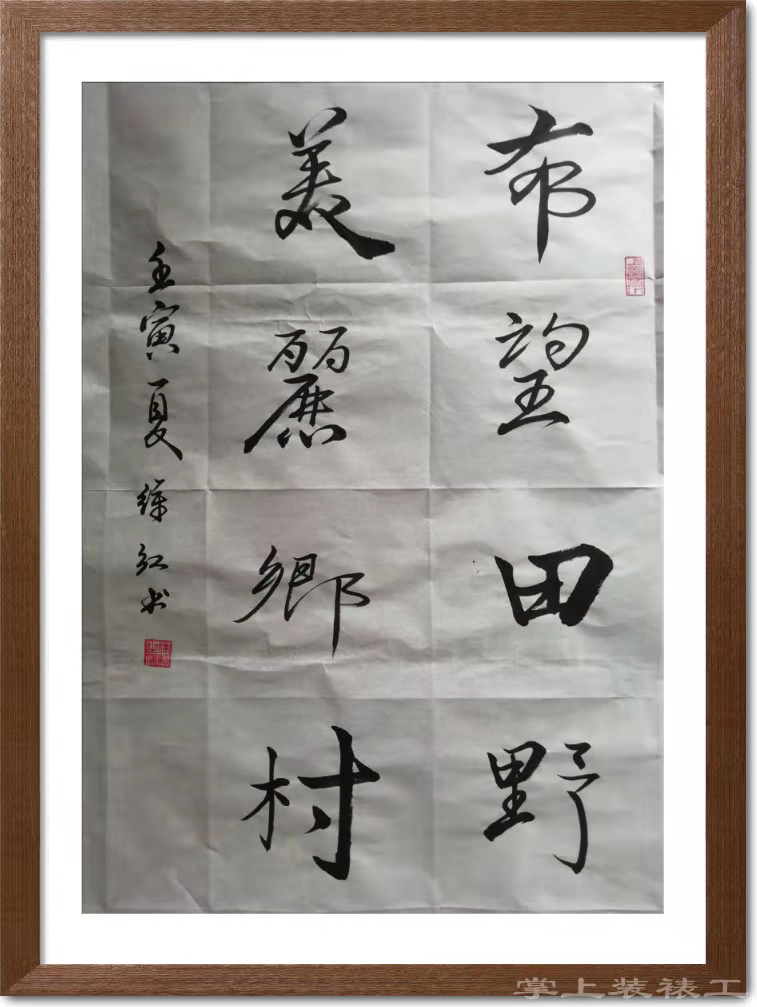 希望田野
美麗鄉村
壬寅夏 红书
掌上装裱工